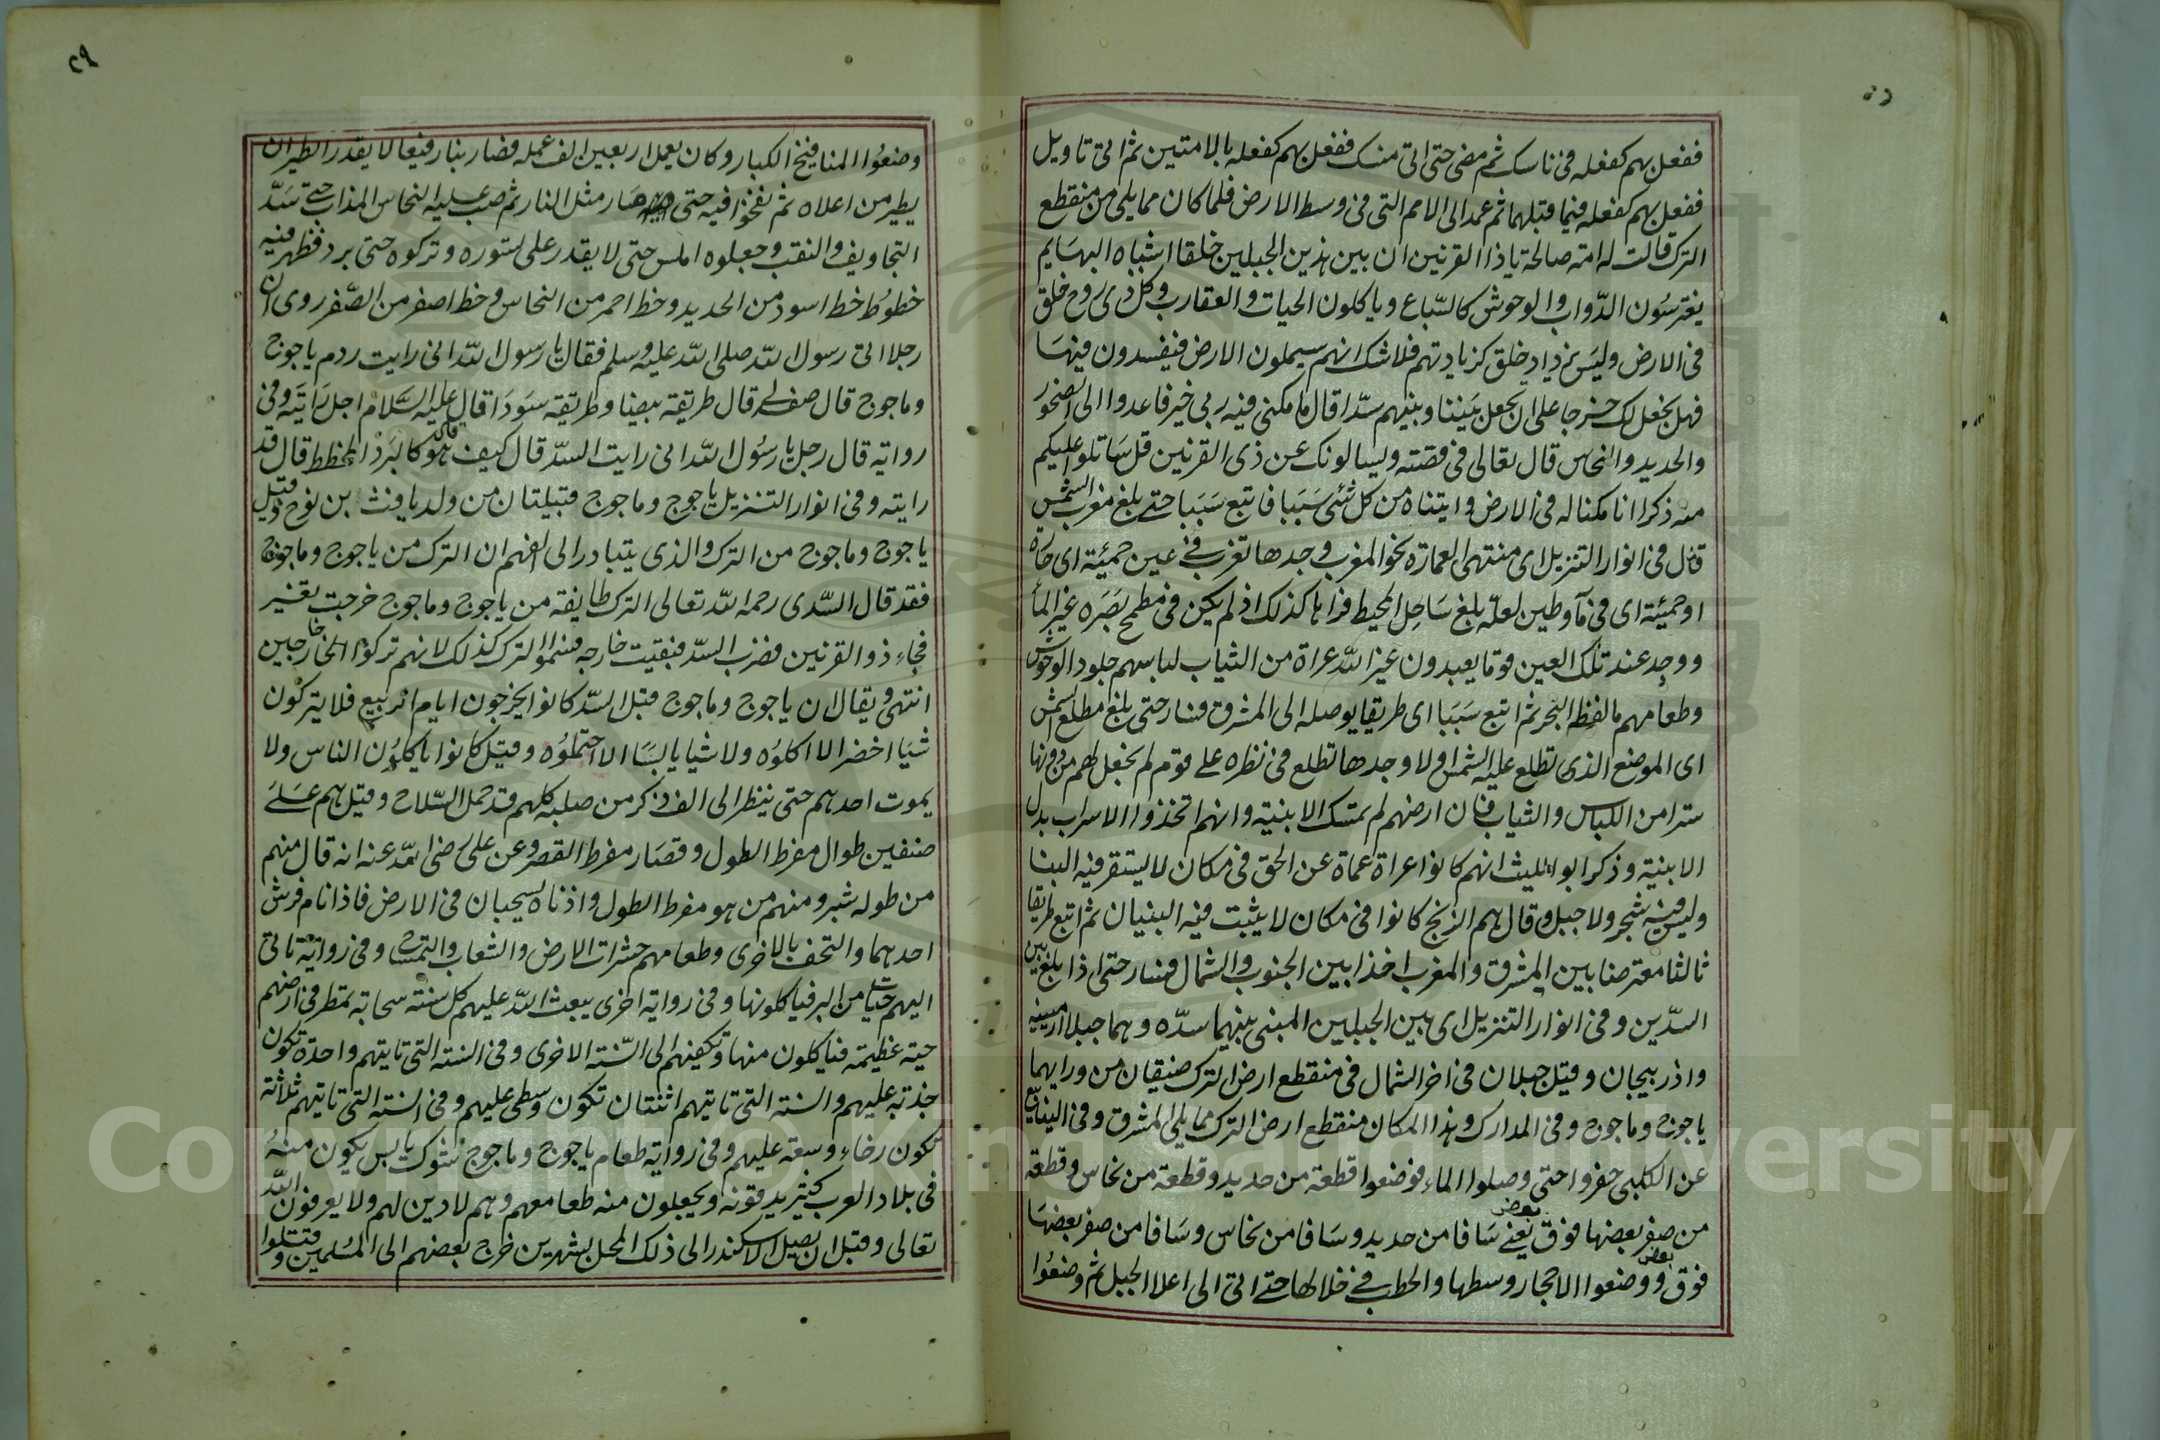 ففعل بهم كفعله فى ناسك ثم مضى حتى اتى منسك ففعل بهم كفعله بالامتين ثم اتى تاويل
ففعل بهم كفعله فيما قبلهما ثم عمد الى الامم التى فى وسط الارض فلما كان مما يلى من منقطع
الترك قالت له امة صالحة ياذا القرنين ان بين هذين الجبلين خلقا اشباه البهايم
يفترسون الدواب والوحوش كالسباع وياكلون الحيات والعقارب وكل ذى روح خلق
فى الارض وليس يزداد خلق كزيادتهم فلاشك انهم سيملون الارض فيفسدون فيها
فهل نجعل لك خرجا على ان تجعل بيننا وبينهم سدا قال ما مكنى فيه ربى خير فاعدوا الى الصخور
والحديد والنحاس قال تعالى فى قصته ويسالونك عن ذى القرنين قل ساتلوا عليكم
منه ذكرا انا مكنا له فى الارض واتيناه من كل شئ سببا فاتبع سببا حتى بلغ مغرب الشمس
قال فى انوار التنزيل اى منتهى العمارة نحو المغرب وجدها تغرب فى عين حمئية اى حارة
او حمئية اى فى ماء وطين لعله بلغ ساحل المحيط فراها كذلك اذ لم يكن فى مطمح بصره غير الماء
ووجد عند تلك العين قوما يعبدون غير الله عراة من الثياب لباسهم جلود الوحوش
وطعامهم ما لفظه البحر ثم اتبع سببا اى طريقا يوصله الى المشرق فسار حتى بلغ مطلع الشمس
اى الموضع الذى تطلع عليه الشمس اولا وجدها تطلع فى نظره على قوم لم نجعل لهم من دونها
سترا من اللباس والثياب فان ارضهم لم تمسك الابنية وانهم اتخذوا الاسراب بدل
الابنية وذكر ابو الليث انهم كانوا عراة عماة عن الحق فى مكان لا يستقر فيه البنا
وليس فيه شجر ولا جبل وقال هم الزنج كانوا فى مكان لا يثبت فيه البنيان ثم اتبع طريقا
ثالثا معترضا بين المشرق والمغرب اخذا بين الجنوب والشمال فسار حتى اذا بلغ بين
السدين وفى انوار التنزيل اى بين الجبلين المبنى بينهما سده وهما جبلا ارمينيه
واذربيجان وقيل جبلان فى اخر الشمال فى منقطع ارض الترك منيفان من ورايهما
ياجوج وماجوج وفى المدارك وهذا المكان منقطع ارض الترك مما يلى المشرق وفى الينابيع
عن الكلبى حفروا حتى وصلوا الماء فوضعوا قطعة من حديد وقطعة من نحاس وقطعة
من صفر بعضها فوق بعض يعنى سافا من حديد وسافا من نحاس وسافا من صفر بعضها
فوق بعض ووضعوا الاحجار وسطها والحطب فى خلالها حتى اتى الى اعلا الجبل ثم وضعوا
٢٩
وضعوا المنافيخ الكبار وكان يعمل اربعين الف عمله فصار بنا رفيعا لا يقدر الطير ان
يطير من اعلاه ثم نفخوا فيه حتى صار مثل النار ثم صب عليه النحاس المذاب حتى سد
التجاويف والنقب وجعلوه املس حتى لا يقدر على تسوره وتركوه حتى برد فظهر فيه
خطوط خط اسود من الحديد وخط احمر من النحاس وخط اصفر من الصفر روى ان
رجلا اتى رسول الله صلى الله عليه وسلم فقال يا رسول الله انى رايت ردم ياجوج
وماجوج قال صفه لى قال طريقة بيضا وطريقه سودا قال عليه السلام اجل رايته وفى
رواية قال رجل يا رسول الله انى رايت السد قال كيف هو قال كالبرد المخطط قال قد
رايته وفى انوار التنزيل ياجوج وماجوج قبيلتان من ولد يافث بن نوح وقيل
ياجوج وماجوج من الترك والذى يتبادر الى الفهم ان الترك من ياجوج وماجوج
فقد قال السدى رحمه الله تعالى الترك طايفة من ياجوج وماجوج خرجت تغير
فجاء ذو القرنين فضرب السد فبقيت خارجه فسموا الترك كذلك لانهم تركوا خارجين
انتهى ويقال ان ياجوج وماجوج قبل السد كانوا يخرجون ايام الربيع فلا يتركون
شيا اخضر الا اكلوه ولا شيا يابسا الا احتملوه وقيل كانوا ياكلون الناس ولا
يموت احدهم حتى ينظر الى الف ذكر من صلبه كلهم قد حمل السلاح وقيل هم على
صنفين طوال مفرط الطول وقصار مفرط القصر وعن على رضى الله عنه انه قال منهم
من طوله شبر ومنهم من هو مفرط الطول واذناه يسحبان فى الارض فاذا نام فرش
احدهما والتحف بالاخرى وطعامهم حشرات الارض والشعاب والتمساح وفى رواية تاتى
اليهم حيتان من البر فياكلونها وفى رواية اخرى يبعث الله عليهم كل سنة سحابة تمطر فى ارضهم
حية عظيمة فياكلون منها وتكفيهم الى السنة الاخرى وفى السنة التى تاتيهم واحدة تكون
جذبة عليهم والسنة التى تاتيهم اثنتان تكون وسطى عليهم وفى السنة التى تاتيهم ثلاثة
تكون رخاء وسعة عليهم وفى رواية طعام ياجوج وماجوج شوك يابس يكون منه
فى بلاد العرب كثير يدقونه ويجعلون منه طعامهم وهم لا دين لهم ولا يعرفون الله
تعالى وقبل ان يصل الاسكندر الى ذلك المحل بشهرين خرج بعضهم الى المسلمين وقتلوا
Copyright © King Saud University